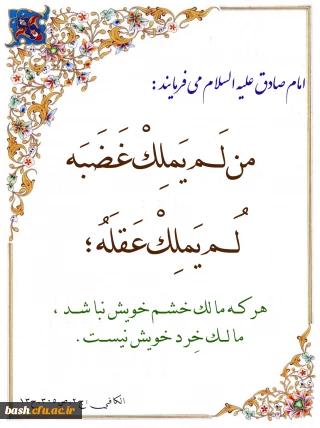 امام صادق علیه السلام می فرمایند :
من لَـم یَملِکْ غَضَبَه
لُـم یَملِکْ عَقلَهُ ؛
هر که مالك خشم خویش نباشد ،
مالـك خِرد خویش نیست .
الکافی : ج۲، ص۳۰۵، ح۱۳
bash.cfu.ac.ir